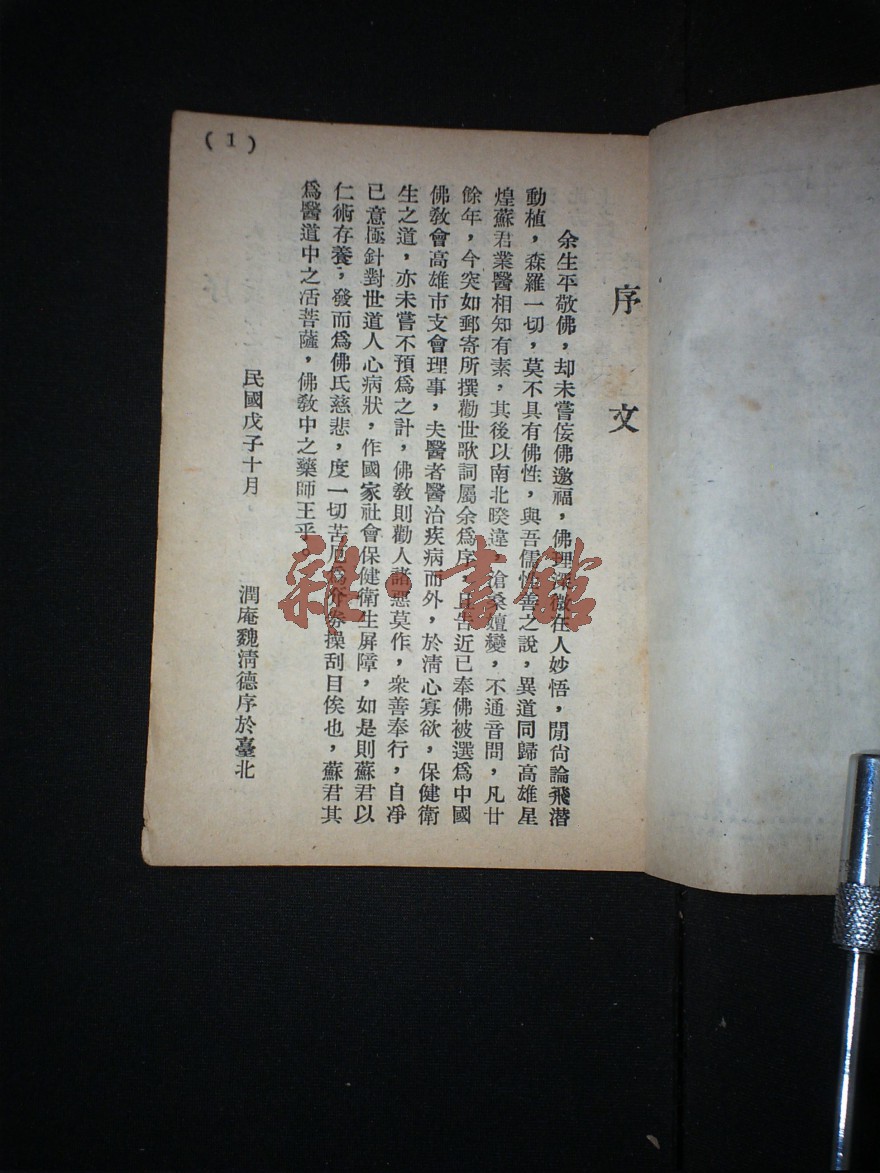 (1)
序文
余生平敬佛，却未嘗佞佛邀福，佛理深微在人妙悟，閒尙論飛潜
動植，森羅一切，莫不具有佛性，與吾儒性善之說，異道同歸高雄星
煌蘇君業醫相知有素，其後以南北暌違，滄桑嬗變，不通音問，凡廿
餘年，今突如郵寄所撰勸世歌詞屬余爲序，且告近已奉佛被選爲中國
佛敎會高雄市支會理事，夫醫者醫治疾病而外，於淸心寡欲，保健衛
生之道，亦未嘗不預爲之計，佛敎則勸人諸惡莫作，衆善奉行，自凈
已意極針對世道人心病狀，作國家社會保健衛生屛障，如是則蘇君以
仁術存養，發而爲佛氏慈悲，度一切苦厄爲操刮目俟也，蘇君其
爲醫道中之活菩薩，佛敎中之藥師王乎。
民國戊子十月
潤庵魏淸德序於臺北
雜·書館